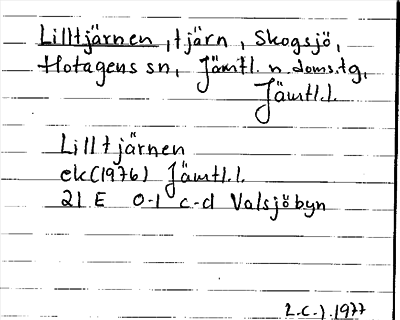 Lilltjärnen, tjärn, Skogsjö,
Hotagens sn, Jämtl. n. doms.tg,
Jämtl.l.
Lilltjärnen
ek(1976) Jämtl.l.
21 E 0-1 c-d Valsjöbyn
L.C.J. 1977